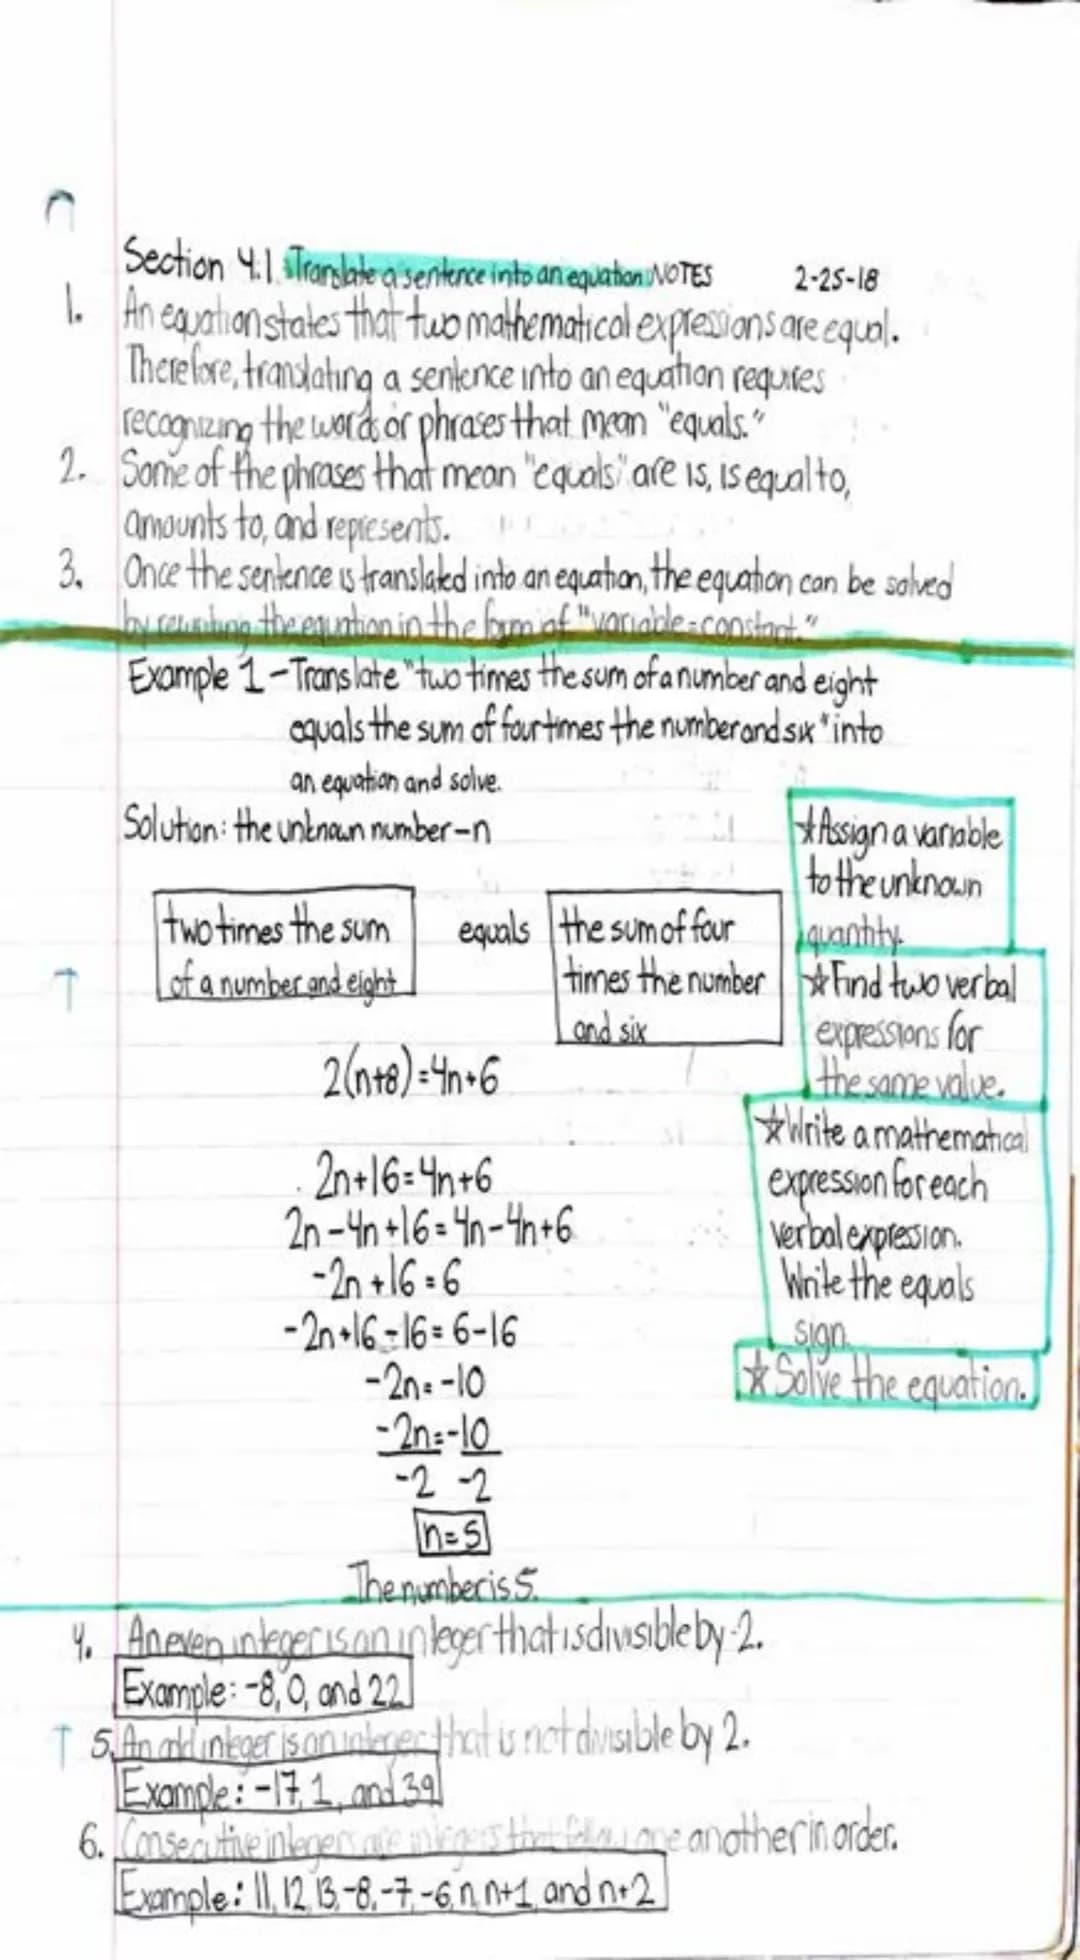 Section 4.1 Translate a sentence into an equation NOTES 2-25-18
1. An equation states that two mathematical expressions are equal.
Therefore, translating a sentence into an equation requires
recognizing the words or phrases that mean "equals."
2. Some of the phrases that mean "equals" are is, is equal to,
amounts to, and represents.
3. Once the sentence is translated into an equation, the equation can be solved
by rewriting the equation in the form of "variable=constant."
Example 1-Translate "two times the sum of a number and eight
equals the sum of four times the number and six" into
an equation and solve.
Solution: the unknown number-n
two times the sum
of a number and eight
equals
the sum of four
times the number
and six
☆Assign a variable
to the unknown
quantity.
☆Find two verbal
expressions for
the same value.
2(n+8)=4n+6
☆Write a mathematical
expression for each
verbal expression.
Write the equals
sign.
2n+16=4n+6
2n-4n+16=4n-4n+6
-2n+16=6
-2n+16-16=6-16
-2n=-10
☆Solve the equation.
-2n=-10
-2 -2
n=5
The number is 5.
4. An even integer is an integer that is divisible by 2.
Example: -8, 0, and 22
5. An odd integer is an integer that is not divisible by 2.
Example: -17, 1, and 39
6. Consecutive integers are integers that follow one another in order.
Example: 11, 12, 13, -8, -7, -6, n, n+1, and n+2